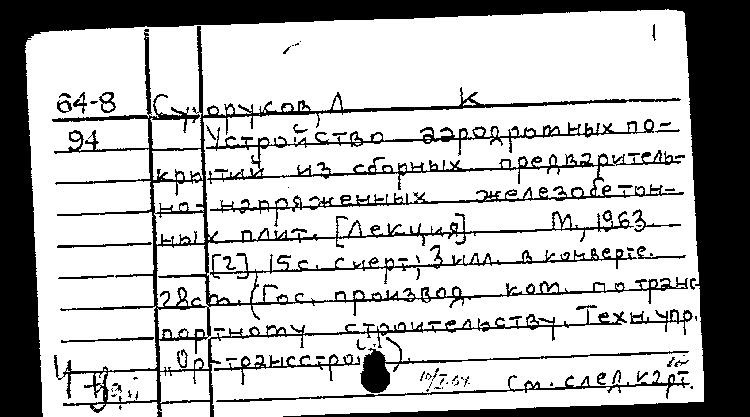 1
64-8 Сухоруков, Л К
94 Устройство аэродромных по-
крытий из сборных предваритель-
но-напряженных железобетон-
ных плит. [Лекция]. М., 1963
[2], 15 с. с черт; 3 илл. в конверте.
28 см. (Гос. производ. ком. по транс
портному строительству. Техн. упр.
"Оргтрансстрой").
См. след. карт.